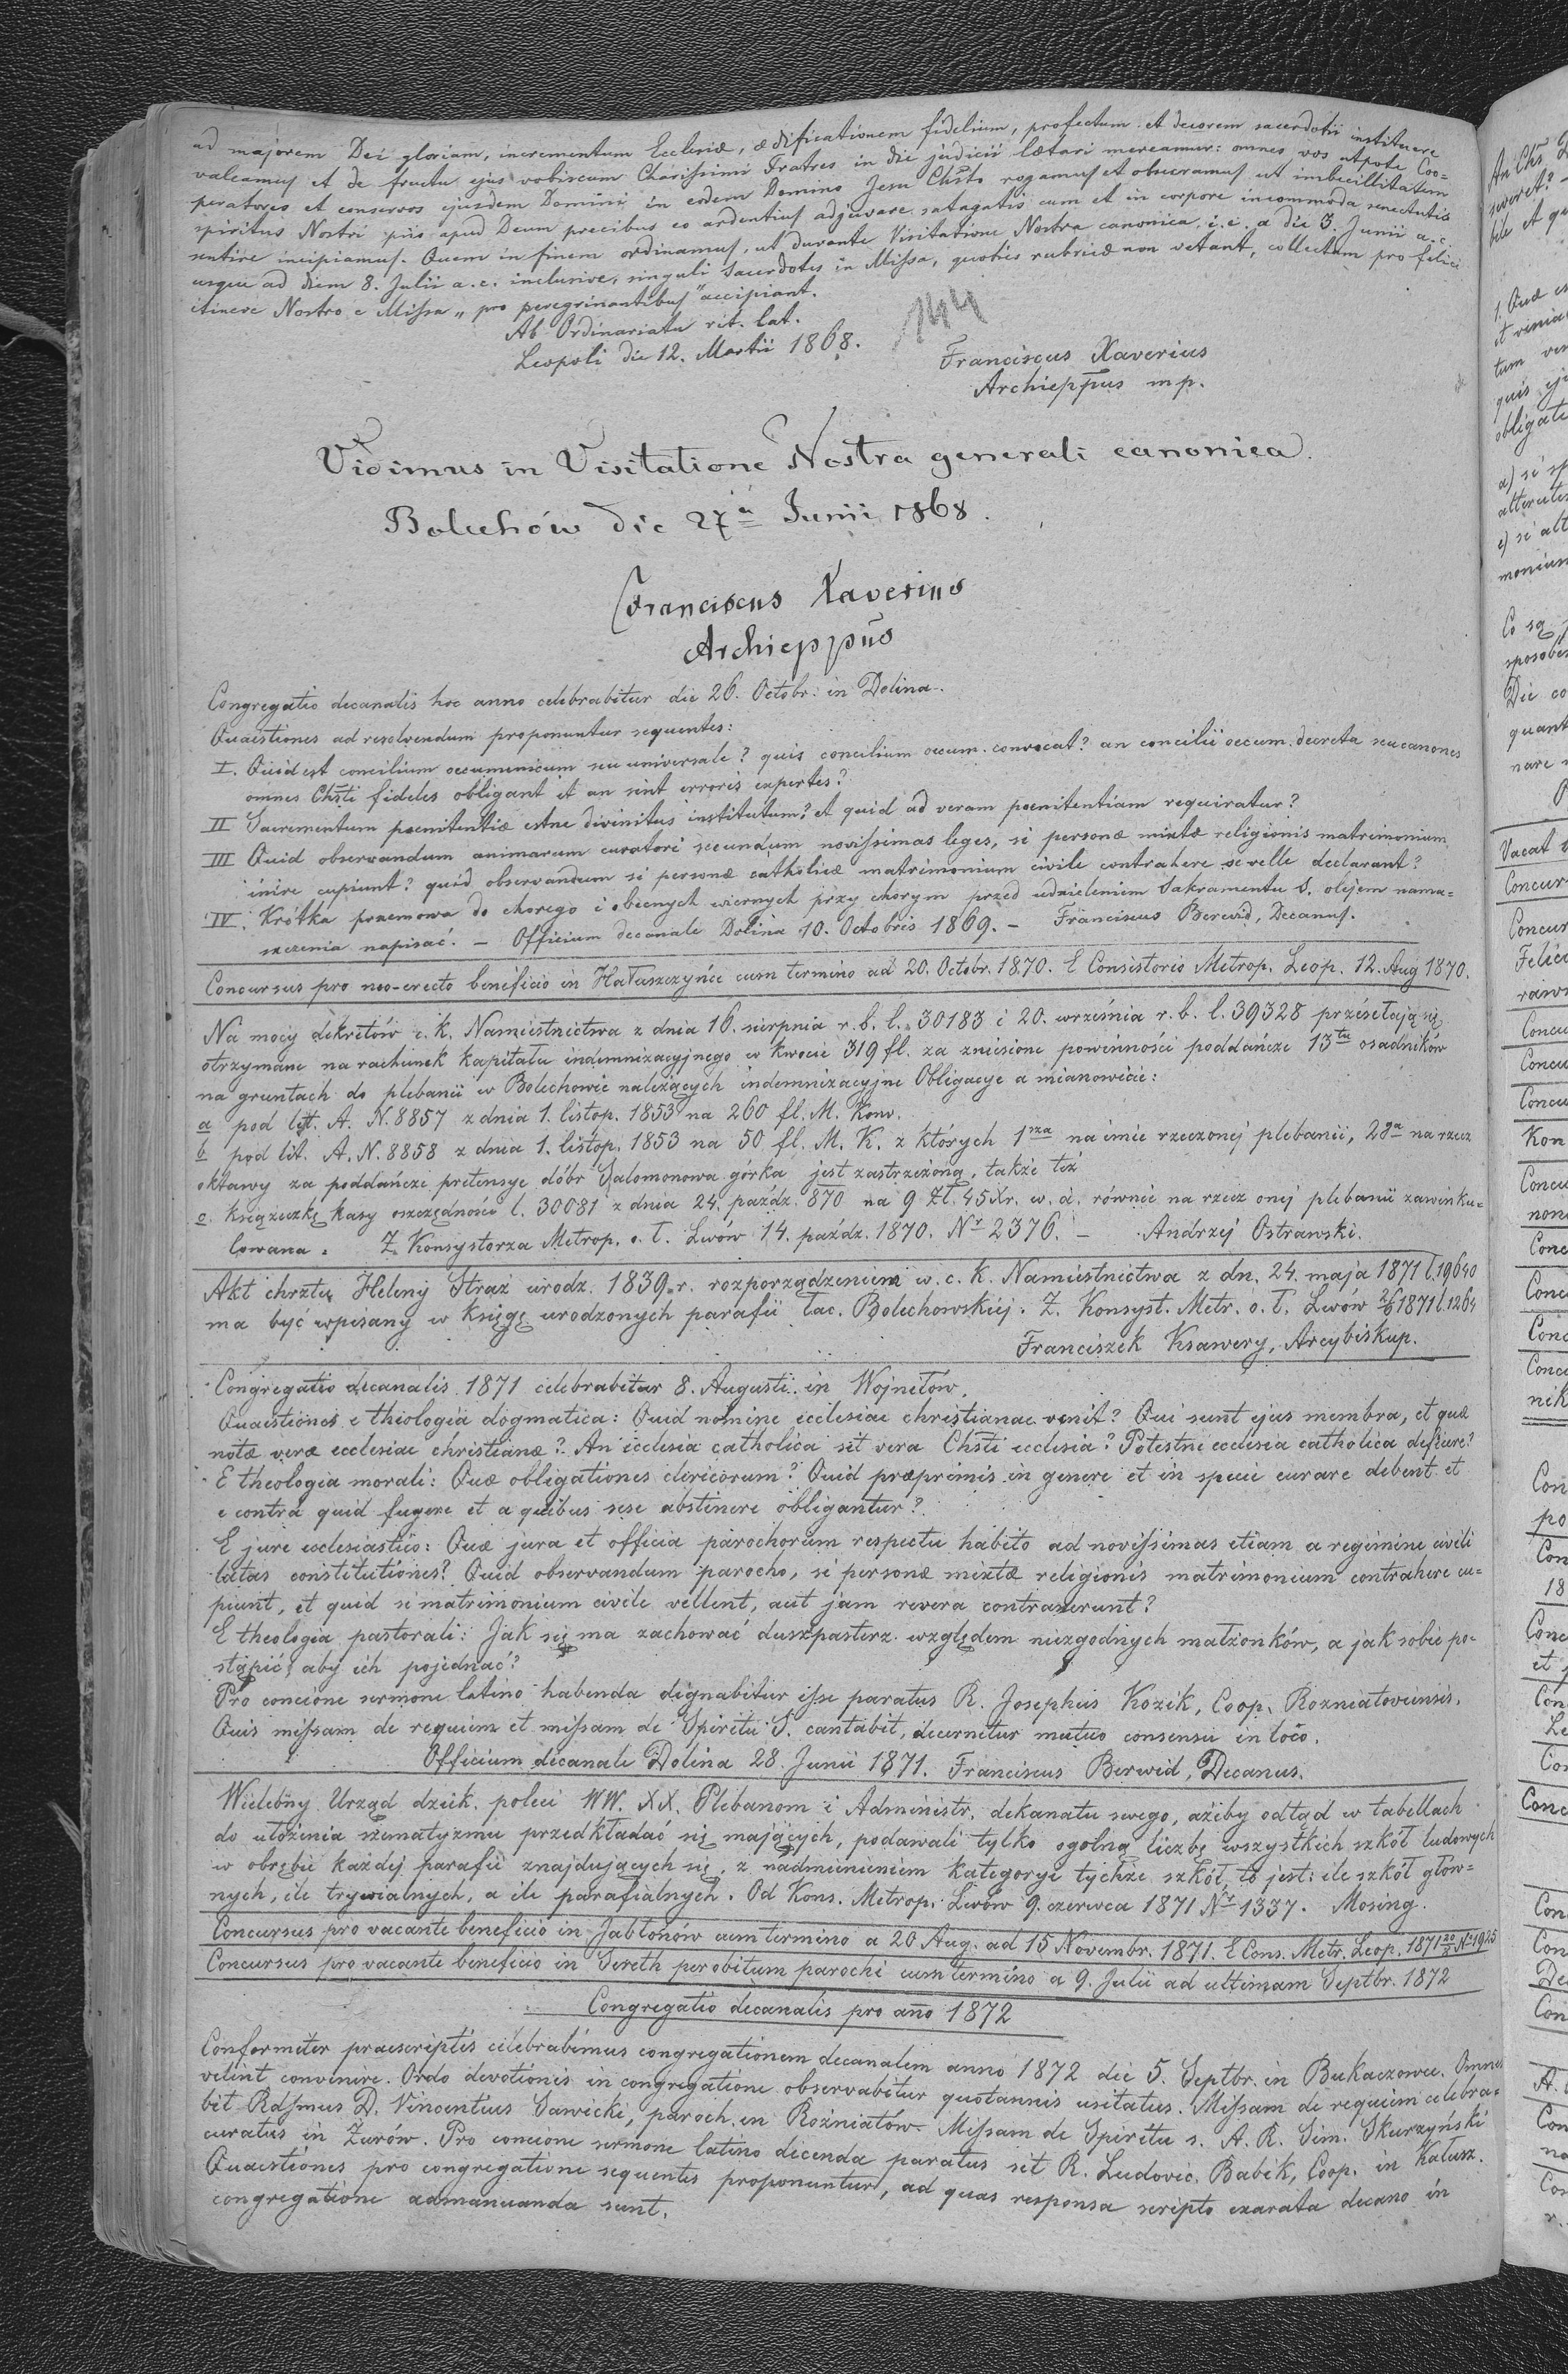 ad majorem Dei gloriam, incrementum Ecclesiæ, ædificationem fidelium, profectum et decorem sacerdotii instituere
valeamus et de fructu ejus vobiscum Charissimi Fratres in die judicii lætari mereamur: omnes vos utpote Coo=
peratores et conservos ejusdem Domini in eodem Domino Jesu Chsto rogamus et obsecramus ut imbecillitatem
spiritus Nostri piis apud Deum precibus eo ardentius adjuvare satagatis cum et in corpore incommoda senectutis
sentire incipiamus. Quem in finem ordinamus, ut durante Visitatione Nostra canonica, i. e. a die 3. Junii a. c.
usque ad diem 8. Julii a. c. inclusive, singuli Sacerdotes in Missa, quoties rubricæ non vetant, collectam pro felici
itinere Nostro e Missa „pro peregrinantibus" accipiant.
Ab Ordinariatu rit. lat.
Leopoli die 12. Martii 1868.
144
Franciscus Xaverius
Archieppus mp.
Vidimus in Visitatione Nostra generali canonica
Bolechów die 27ᵃ Junii 1868.
Franciscus Xaverius
Archieppus
Congregatio decanalis hoc anno celebrabitur die 26. Octobr: in Dolina.
Quaestiones ad resolvendum proponuntur sequentes:
I. Quid est concilium oecumenicum seu universale? quis concilium oecum. convocat? an concilii oecum. decreta seu canones
omnes Chsti fideles obligant et an sint erroris expertes?
II Sacrementum poenitentiæ estne divinitus institutum? et quid ad veram poenitentiam requiratur?
III Quid observandum animarum curatori secundum novissimas leges, si personæ mixtæ religionis matrimonium
inire cupiunt? quid observandum si personæ catholicæ matrimonium civile contrahere se velle declarant?
IV. Krótka przemowa do chorego i obecnych wiernych przy chorym przed udzieleniem Sakramentu S. olejem nama=
szczenia napisać. – Officium decanale Dolina 10. Octobris 1869. – Franciscus Berwid, Decanus.
Concursus pro neo-erecto beneficio in Hałuszczyńce cum termino ad 20. Octobr. 1870. E Consistorio Metrop. Leop. 12. Aug 1870.
Na mocy dekretów c. k. Namiestnictwa z dnia 16. sierpnia r. b. l. 30183 i 20. września r. b. l. 39328 przésełają się
otrzymane na rachunek kapitału indemnizacyjnego w kwocie 319 fl. za zniesione powinności poddańcze 13tu osadników
na gruntach do plebanii w Bolechowie należących indemnizacyjne Obligacye a mianowicie:
a pod litt. A. N. 8857 z dnia 1. listop. 1853 na 260 fl. M. Konv.
b pod lit. A. N. 8858 z dnia 1. listop. 1853 na 50 fl. M. K. z których 1sza na imie rzeczonej plebanii, 2ga na rzecz
oktawy za poddańcze pretensye dóbr Salomonowa górka jest zastrzeżoną, także też
c. książeczkę kasy oszczędności l. 30081 z dnia 24. paźdz. 870 na 9 Zł. 45 Xr. w. a. równie na rzecz onej plebanii zawinku=
lowana. Z Konsystorza Metrop. o. ł. Lwów 14. paźdz. 1870. Nr 2376. – Andrzej Ostrawski.
Akt chrztu Heleny Straż urodz. 1839. r. rozporządzeniem w. c. k. Namiestnictwa z dn. 24. maja 1871 l. 19640
ma być wpisany w księgę urodzonych parafii łac. Bolechowskiej. Z. Konsyst. Metr. o. ł. Lwów 2/6 1871 l. 1264
Franciszek Ksawery, Arcybiskup.
Congregatio decanalis 1871 celebrabitur 8. Augusti in Wojniłow.
Quaestiones e theologia dogmatica: Quid nomine ecclesiae christianae venit? Qui sunt ejus membra, et quæ
notæ veræ ecclesiae christianæ? An ecclesia catholica sit vera Chsti ecclesia? Potestne ecclesia catholica deficere?
E theologia morali: Quæ obligationes clericorum? Quid præprimis in genere et in specie curare debent et
e contra quid fugere et a quibus sese abstinere obligantur?
E jure ecclesiastico: Quæ jura et officia parochorum respectu habito ad novissimas etiam a regimine civili
latas constitutiones? Quid observandum parocho, si personæ mixtæ religionis matrimonium contrahere cu=
piunt, et quid si matrimonium civile vellent, aut jam revera contraxerunt?
E theologia pastorali: Jak się ma zachować duszpasterz względem niezgodnych małżonków, a jak sobie po=
stąpić, aby ich pojednać?
Pro concione sermone latino habenda dignabitur esse paratus R. Josephus Kozik, Coop. Rozniatoviensis.
Quis missam de requiem et missam de Spiritu S. cantabit, decernetur mutuo consensu in loco.
Officium decanale Dolina 28. Junii 1871. Franciscus Berwid, Decanus.
Wielebny Urząd dziek. poleci WW. XX. Plebanom i Administr. dekanatu swego, ażeby odtąd w tabellach
do ułożenia szematyzmu przedkładać się mających, podawali tylko ogolną liczbę wszystkich szkół ludowych
w obrębie każdej parafii znajdujących się, z nadmienieniem kategoryi tychże szkół, to jest: ile szkół głów=
nych, ile trywialnych, a ile parafialnych. Od Kons. Metrop. Lwów 9. czerwca 1871 Nr 1337. Mosing.
Concursus pro vacante beneficio in Jabłonów cum termino a 20 Aug. ad 15 Novembr. 1871. E Cons. Metr. Leop. 1871
Concursus pro vacante beneficio in Sereth per obitum parochi cum termino a 9. Julii ad ultimam Septbr. 1872
Congregatio decanalis pro ano 1872
Conformiter praescriptis celebrabimus congregationem decanalem anno 1872 die 5. Septbr. in Bukaczowce. Omnes
velint convenire. Ordo devotionis in congregatione observabitur quotannis usitatus. Missam de requiem celebra=
bit Rdssmus D. Vincentius Sawicki, paroch. in Rozniatów. Missam de Spiritu s. A. R. Sim. Skurzyński
curatus in Żurów. Pro concione sermone latino dicenda paratus sit R. Ludovic. Babik, Coop. in Kałusz.
Quaestiones pro congregatione sequentes proponuntur, ad quas responsa scripto exarata decano in
congregatione admanuanda sunt.